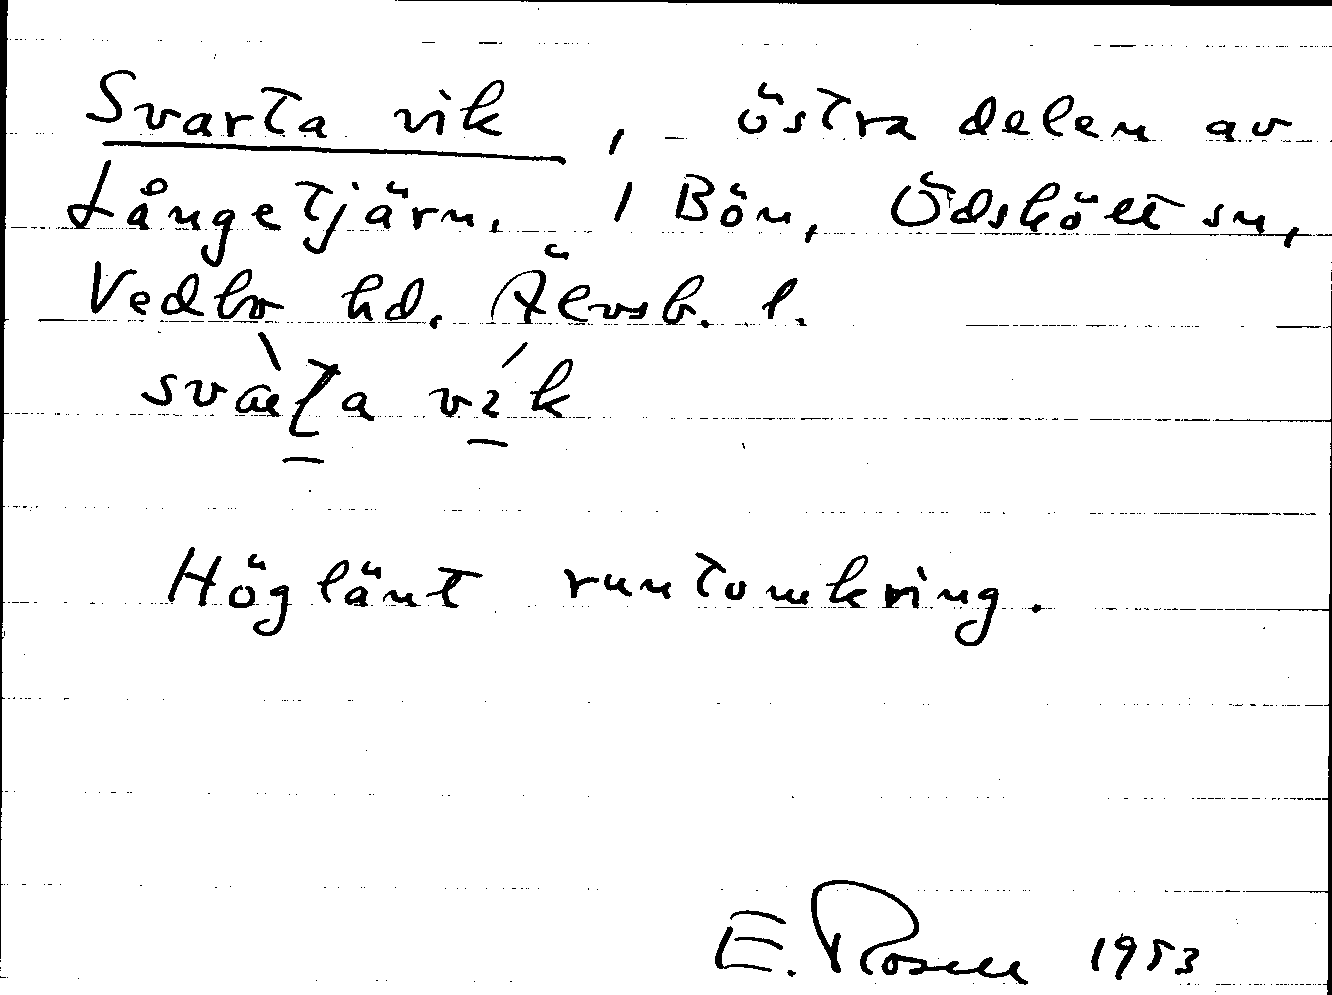 Svarta vik, östra delen av
Långetjärn. I Bön, Ödskölt sn,
Vedbo hd. Älvsb. l.
svàʈa vík
Höglänt runtomkring.
E. Rosell 1953